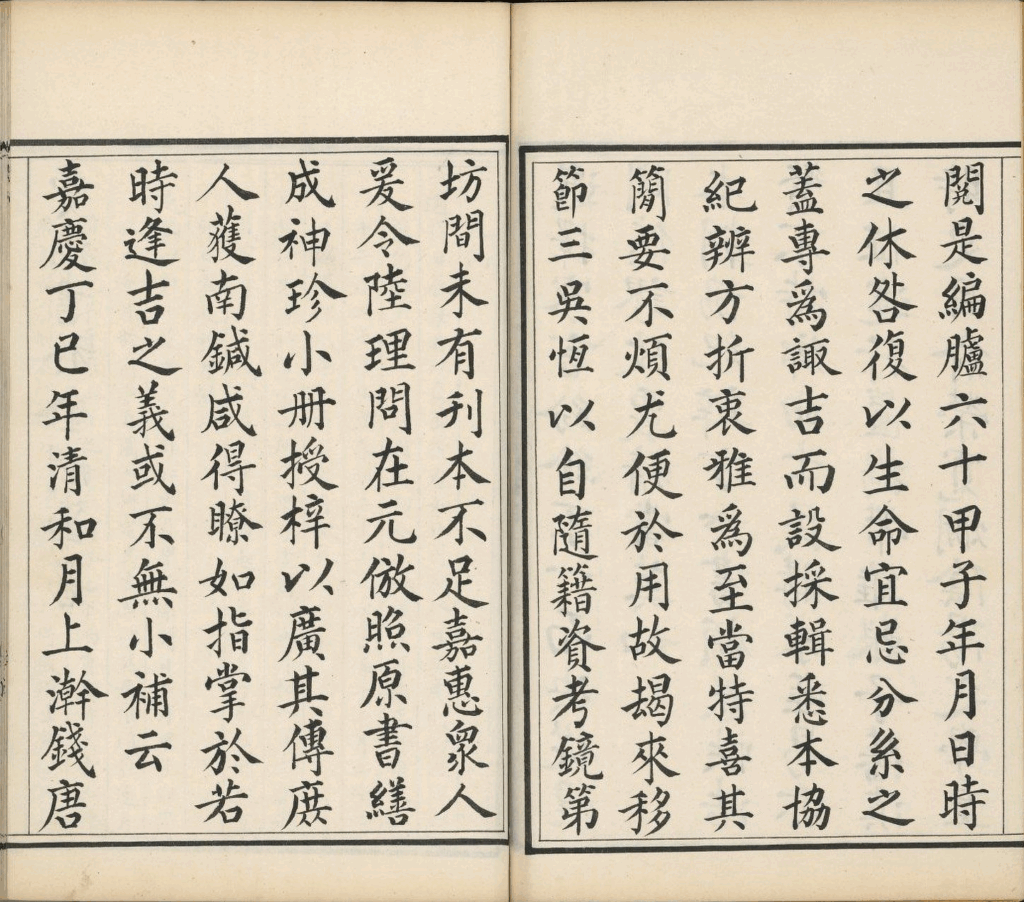 閱是編臚六十甲子年月日時
之休咎復以生命宜忌分系之
蓋專為諏吉而設採輯悉本協
紀辨方折衷雅為至當特喜其
簡要不煩尤便於用故朅來移
節三吳恆以自隨籍資考鏡第
坊間未有刊本不足嘉惠眾人
爰令陸理問在元倣照原書繕
成神珍小冊授梓以廣其傳庶
人獲南鍼咸得瞭如指掌於若
時逢吉之義或不無小補云
嘉慶丁巳年清和月上澣錢唐